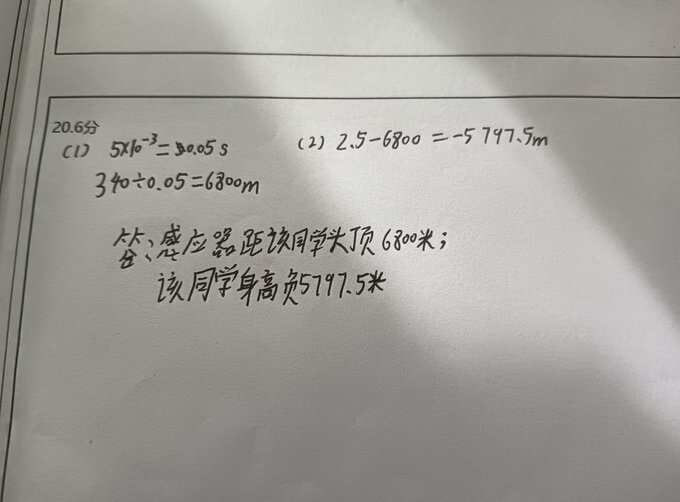 20.6分
(1) 5×10⁻³=0.05s
340÷0.05=6800m
(2) 2.5-6800=-5797.5m
答:感应器距该同学头顶6800米;
该同学身高负5797.5米